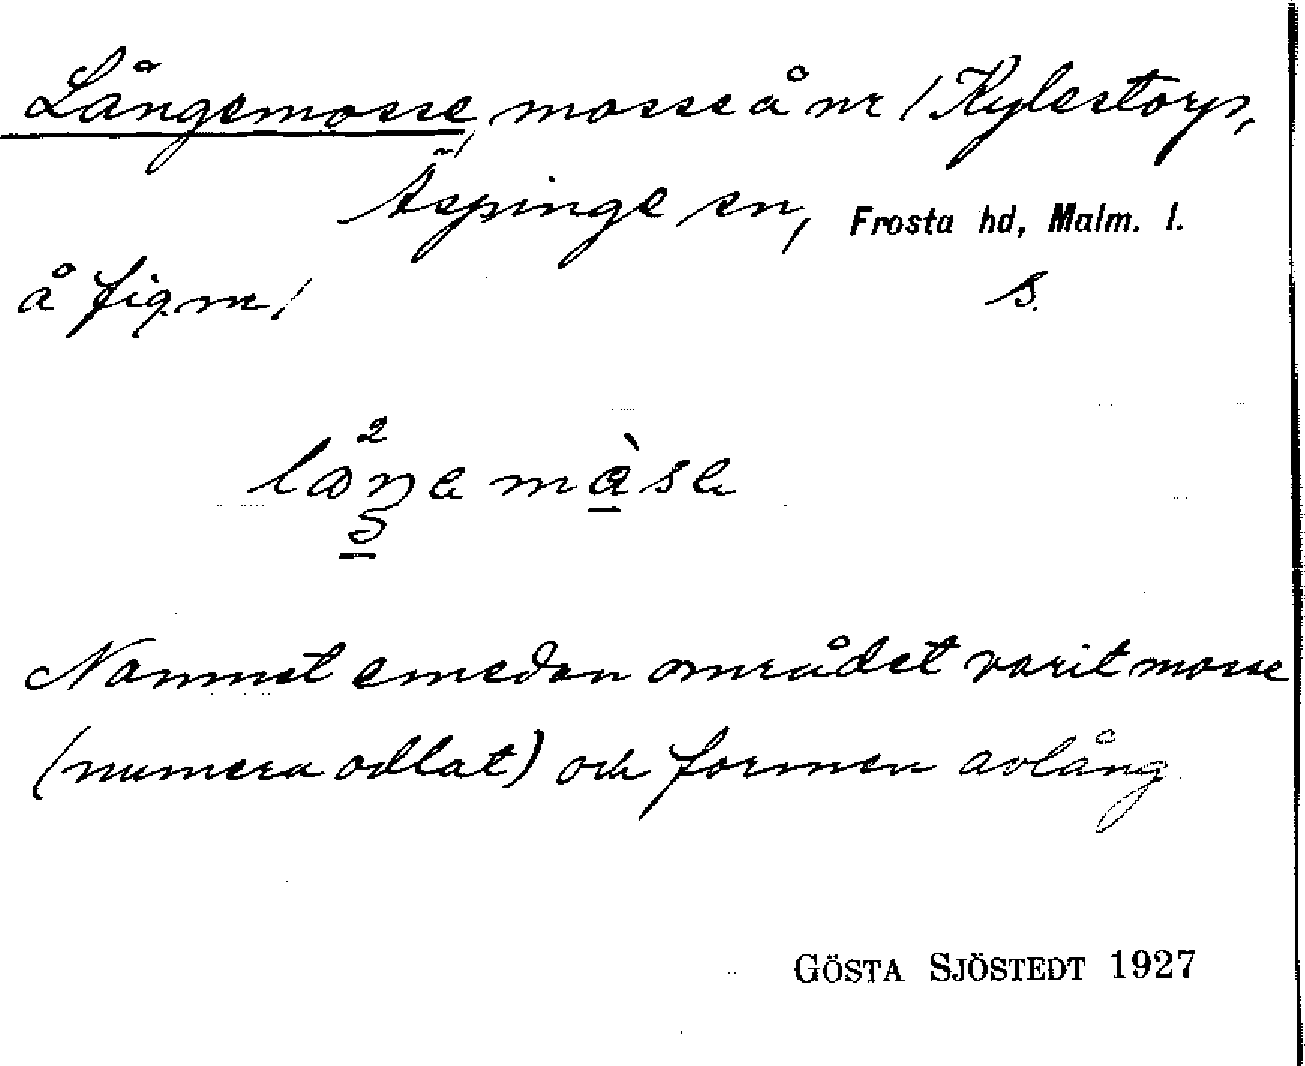 Långemosse, mosse å nr 1 Kylestorp,
Äspinge sn, Frosta hd, Malm. l.
å fig nr 1 S.
Namnet emedan området varit mosse
(numera odlat) och formen avlång
GÖSTA SJÖSTEDT 1927